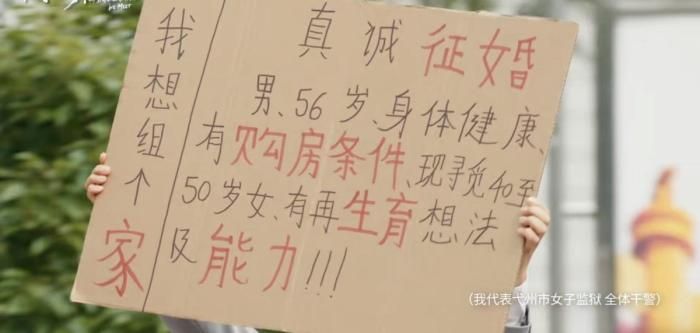 我想组个家
真诚征婚
男、56岁、身体健康、
有购房条件、现寻觅40至
50岁女、有再生育想法
及能力!!!
(我代表弋州市女子监狱 全体干警)